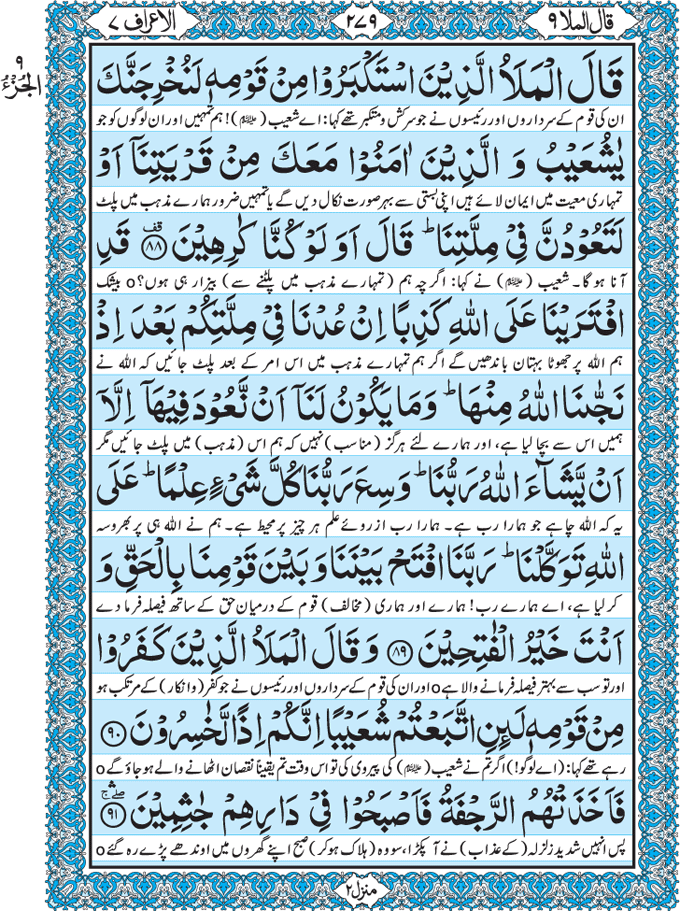 قال الملا ٩
٢٧٩
الاعراف ٧
٩
الجزء
قَالَ الۡمَلَاُ الَّذِیۡنَ اسۡتَکۡبَرُوۡا مِنۡ قَوۡمِہٖ لَنُخۡرِجَنَّکَ
ان کی قوم کے سرداروں اور رئیسوں نے جو سرکش و متکبر تھے کہا: اے شعیب (ﷺ)! ہم تمہیں اور ان لوگوں کو جو
یٰشُعَیۡبُ وَ الَّذِیۡنَ اٰمَنُوۡا مَعَکَ مِنۡ قَرۡیَتِنَاۤ اَوۡ
تمہاری معیت میں ایمان لائے ہیں اپنی بستی سے بہر صورت نکال دیں گے یا تمہیں ضرور ہمارے مذہب میں پلٹ
لَتَعُوۡدُنَّ فِیۡ مِلَّتِنَا ؕ قَالَ اَوَ لَوۡ کُنَّا کٰرِہِیۡنَ ﴿۟۸۸﴾ قَدِ
آنا ہوگا۔ شعیب (ﷺ) نے کہا: اگرچہ ہم (تمہارے مذہب میں پلٹنے سے) بیزار ہی ہوں؟o بیشک
افۡتَرَیۡنَا عَلَی اللّٰہِ کَذِبًا اِنۡ عُدۡنَا فِیۡ مِلَّتِکُمۡ بَعۡدَ اِذۡ
ہم اللہ پر جھوٹا بہتان باندھیں گے اگر ہم تمہارے مذہب میں اس امر کے بعد پلٹ جائیں کہ اللہ نے
نَجّٰنَا اللّٰہُ مِنۡہَا ؕ وَ مَا یَکُوۡنُ لَنَاۤ اَنۡ نَّعُوۡدَ فِیۡہَاۤ اِلَّاۤ
ہمیں اس سے بچا لیا ہے، اور ہمارے لئے ہرگز (مناسب) نہیں کہ ہم اس (مذہب) میں پلٹ جائیں مگر
اَنۡ یَّشَآءَ اللّٰہُ رَبُّنَا ؕ وَسِعَ رَبُّنَا کُلَّ شَیۡءٍ عِلۡمًا ؕ عَلَی
یہ کہ اللہ چاہے جو ہمارا رب ہے۔ ہمارا رب ازروئے علم ہر چیز پر محیط ہے۔ ہم نے اللہ ہی پر بھروسہ
اللّٰہِ تَوَکَّلۡنَا ؕ رَبَّنَا افۡتَحۡ بَیۡنَنَا وَ بَیۡنَ قَوۡمِنَا بِالۡحَقِّ وَ
کرلیا ہے، اے ہمارے رب! ہمارے اور ہماری (مخالف) قوم کے درمیان حق کے ساتھ فیصلہ فرما دے
اَنۡتَ خَیۡرُ الۡفٰتِحِیۡنَ ﴿۸۹﴾ وَ قَالَ الۡمَلَاُ الَّذِیۡنَ کَفَرُوۡا
اور تو سب سے بہتر فیصلہ فرمانے والا ہےo اور ان کی قوم کے سرداروں اور رئیسوں نے جو کفر (و انکار) کے مرتکب ہو
مِنۡ قَوۡمِہٖ لَئِنِ اتَّبَعۡتُمۡ شُعَیۡبًا اِنَّکُمۡ اِذًا لَّخٰسِرُوۡنَ ﴿۹۰﴾
رہے تھے کہا: (اے لوگو!) اگر تم نے شعیب (ﷺ) کی پیروی کی تو اس وقت تم یقیناً نقصان اٹھانے والے ہو جاؤ گےo
فَاَخَذَتۡہُمُ الرَّجۡفَۃُ فَاَصۡبَحُوۡا فِیۡ دَارِہِمۡ جٰثِمِیۡنَ ﴿ۚۖ۹۱﴾
پس انہیں شدید زلزلہ (کے عذاب) نے آ پکڑا، سو وہ (ہلاک ہوکر) صبح اپنے گھروں میں اوندھے پڑے رہ گئےo
منزل ۲